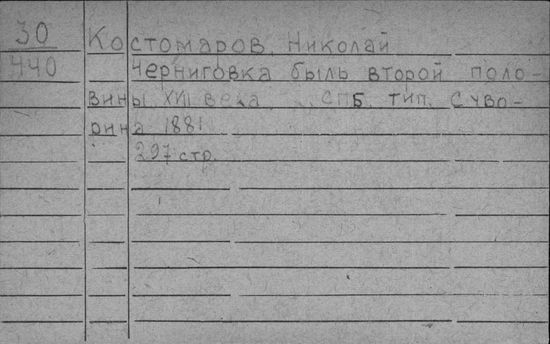 30 Костомаров, Николай
440 Черниговка быль второй поло-
вины XVII века СПБ. тип. Суво-
рина 1881
297 стр.